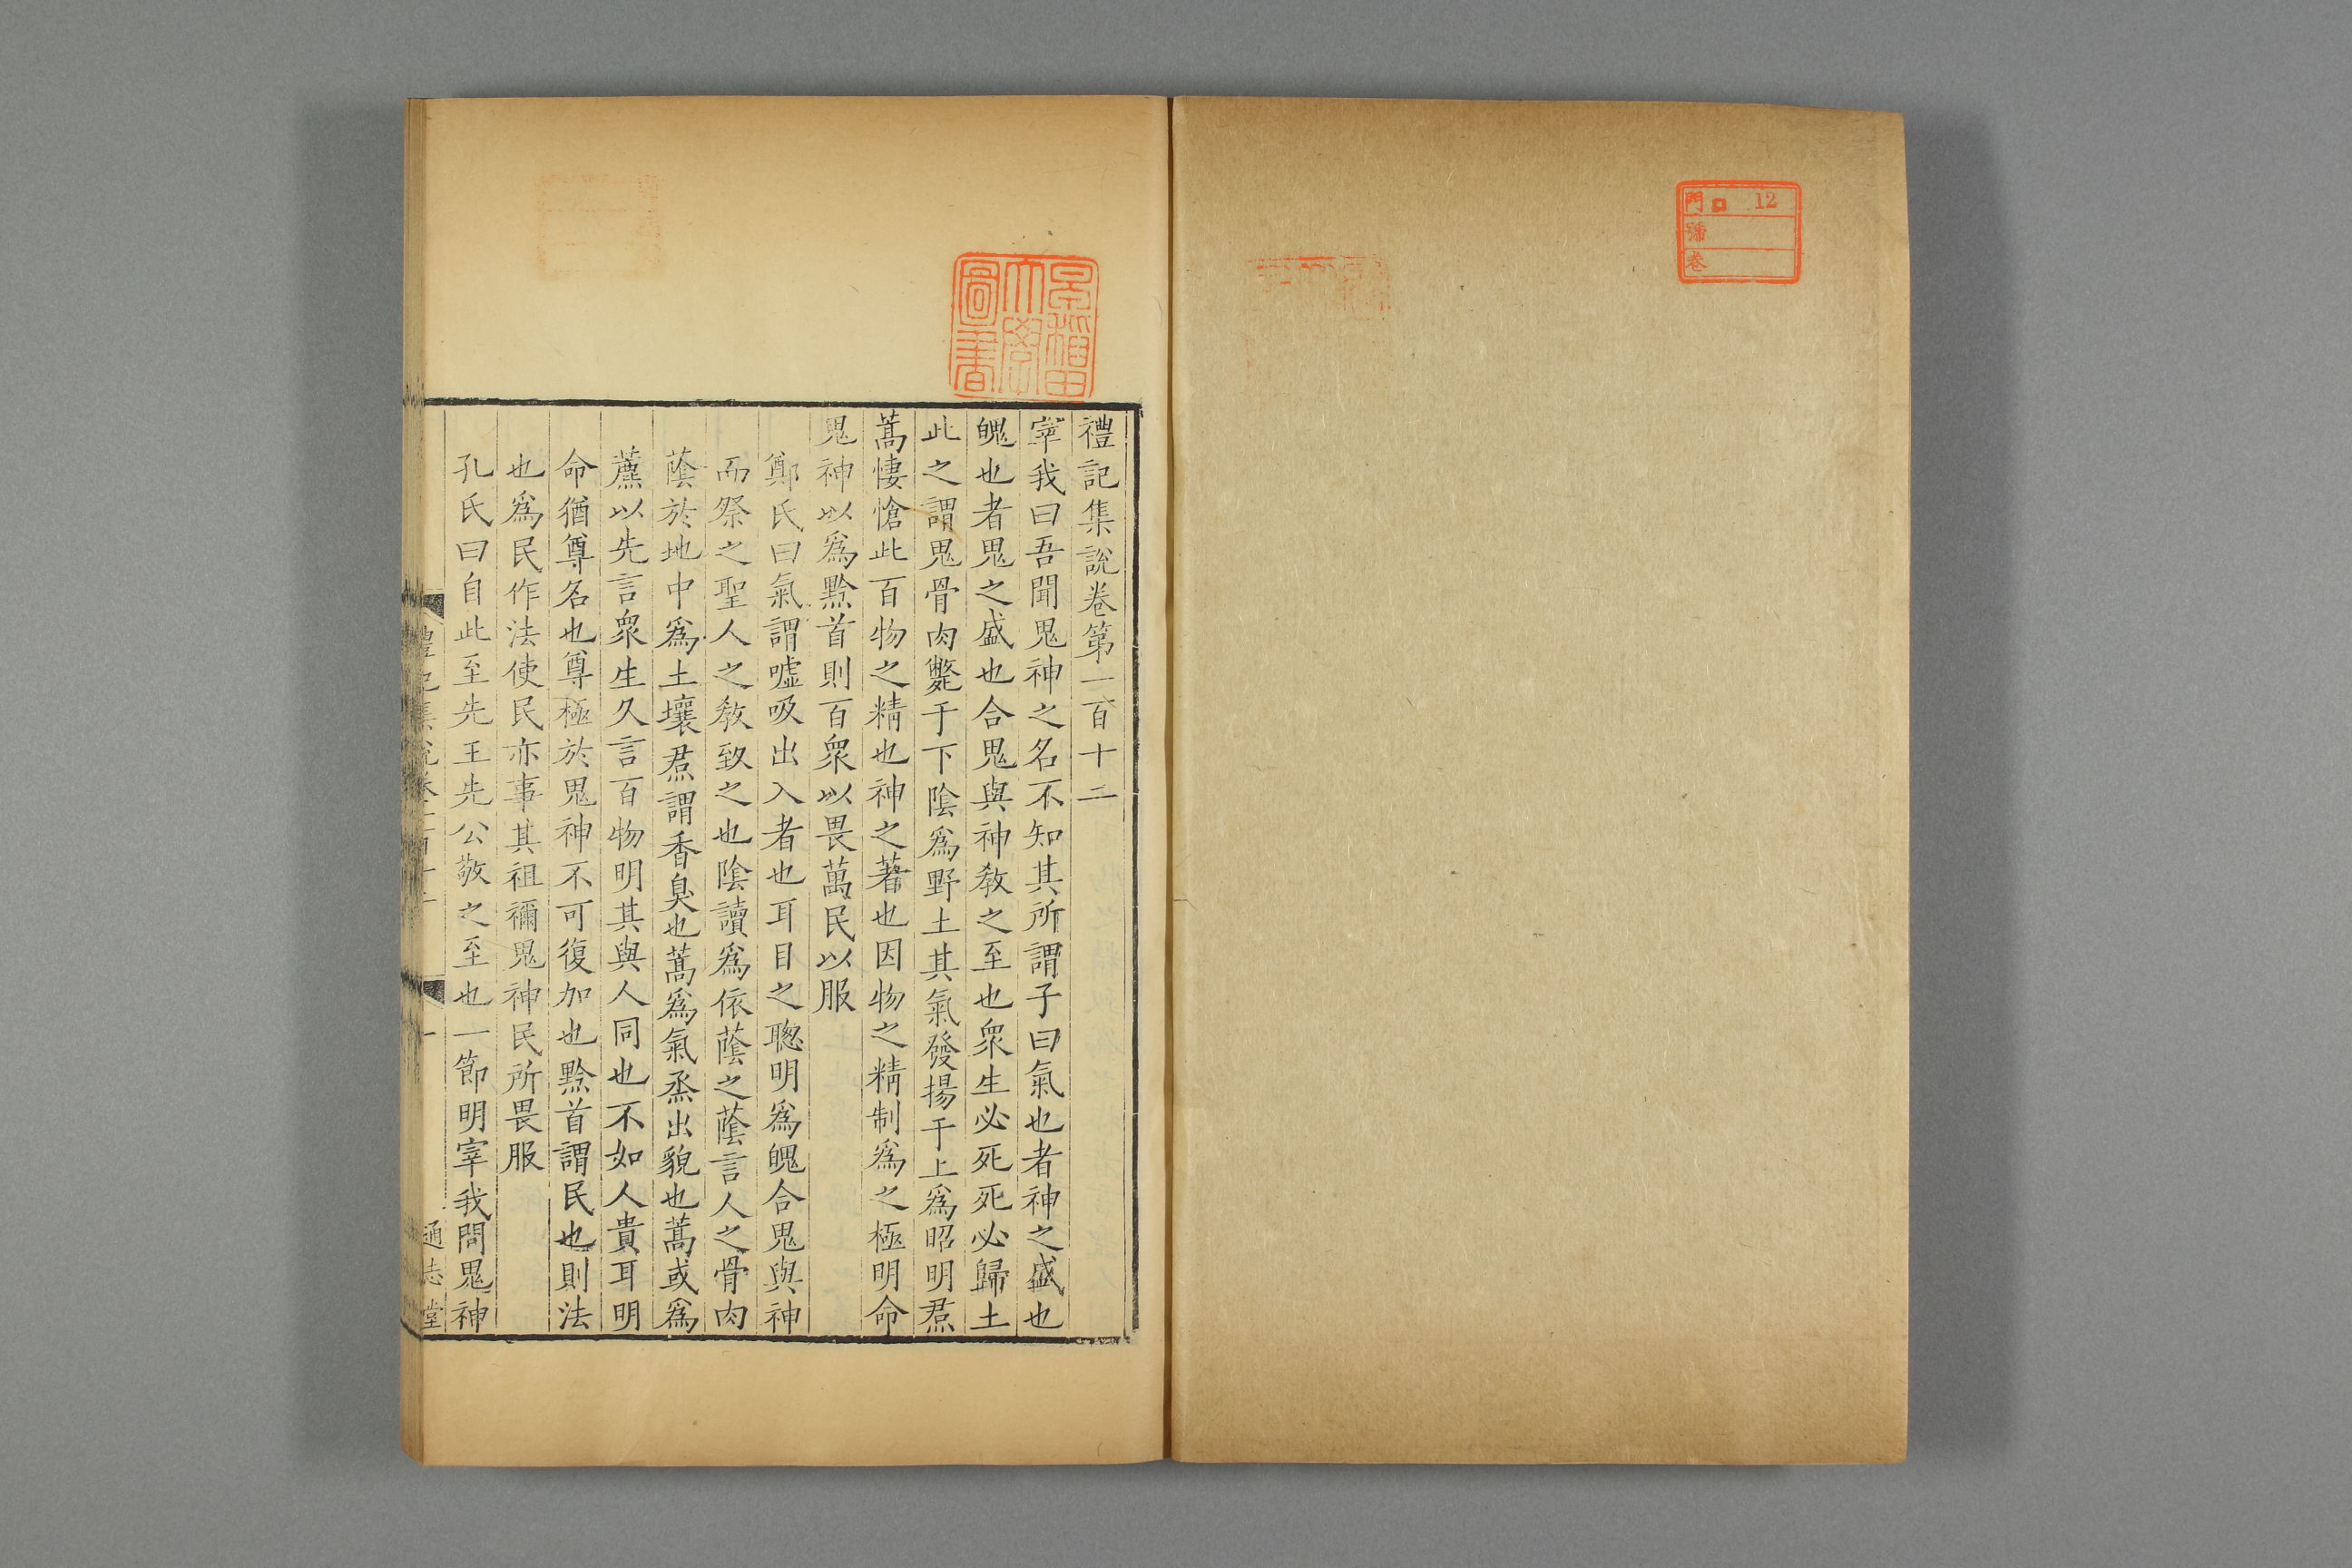 門 12
號
卷
早稲田
大學
圖書
禮記集說卷第一百十二
宰我曰吾聞鬼神之名不知其所謂子曰氣也者神之盛也
魄也者鬼之盛也合鬼與神敎之至也衆生必死死必歸土
此之謂鬼骨肉斃于下陰爲野土其氣發揚于上爲昭明焄
蒿悽愴此百物之精也神之著也因物之精制爲之極明命
鬼神以爲黔首則百衆以畏萬民以服
鄭氏曰氣謂噓吸出入者也耳目之聰明爲魄合鬼與神
而祭之聖人之敎致之也陰讀爲依蔭之蔭言人之骨肉
蔭於地中爲土壤焄謂香臭也蒿爲氣烝出貌也蒿或爲
藨以先言衆生久言百物明其與人同也不如人貴耳明
命猶尊名也尊極於鬼神不可復加也黔首謂民也則法
也爲民作法使民亦事其祖禰鬼神民所畏服
孔氏曰自此至先王先公敬之至也一節明宰我問鬼神
禮記集說卷一百十二 一 通志堂